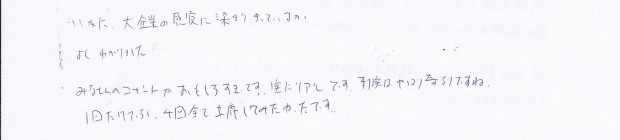 いかに、大企業の感度に染まりきっているか
よく わかりました
みなさんのコメントがおもしろすぎです。実にリアルです。制度はやはり ですね。
1回だけでなく、4回全て出席してみたかったです。